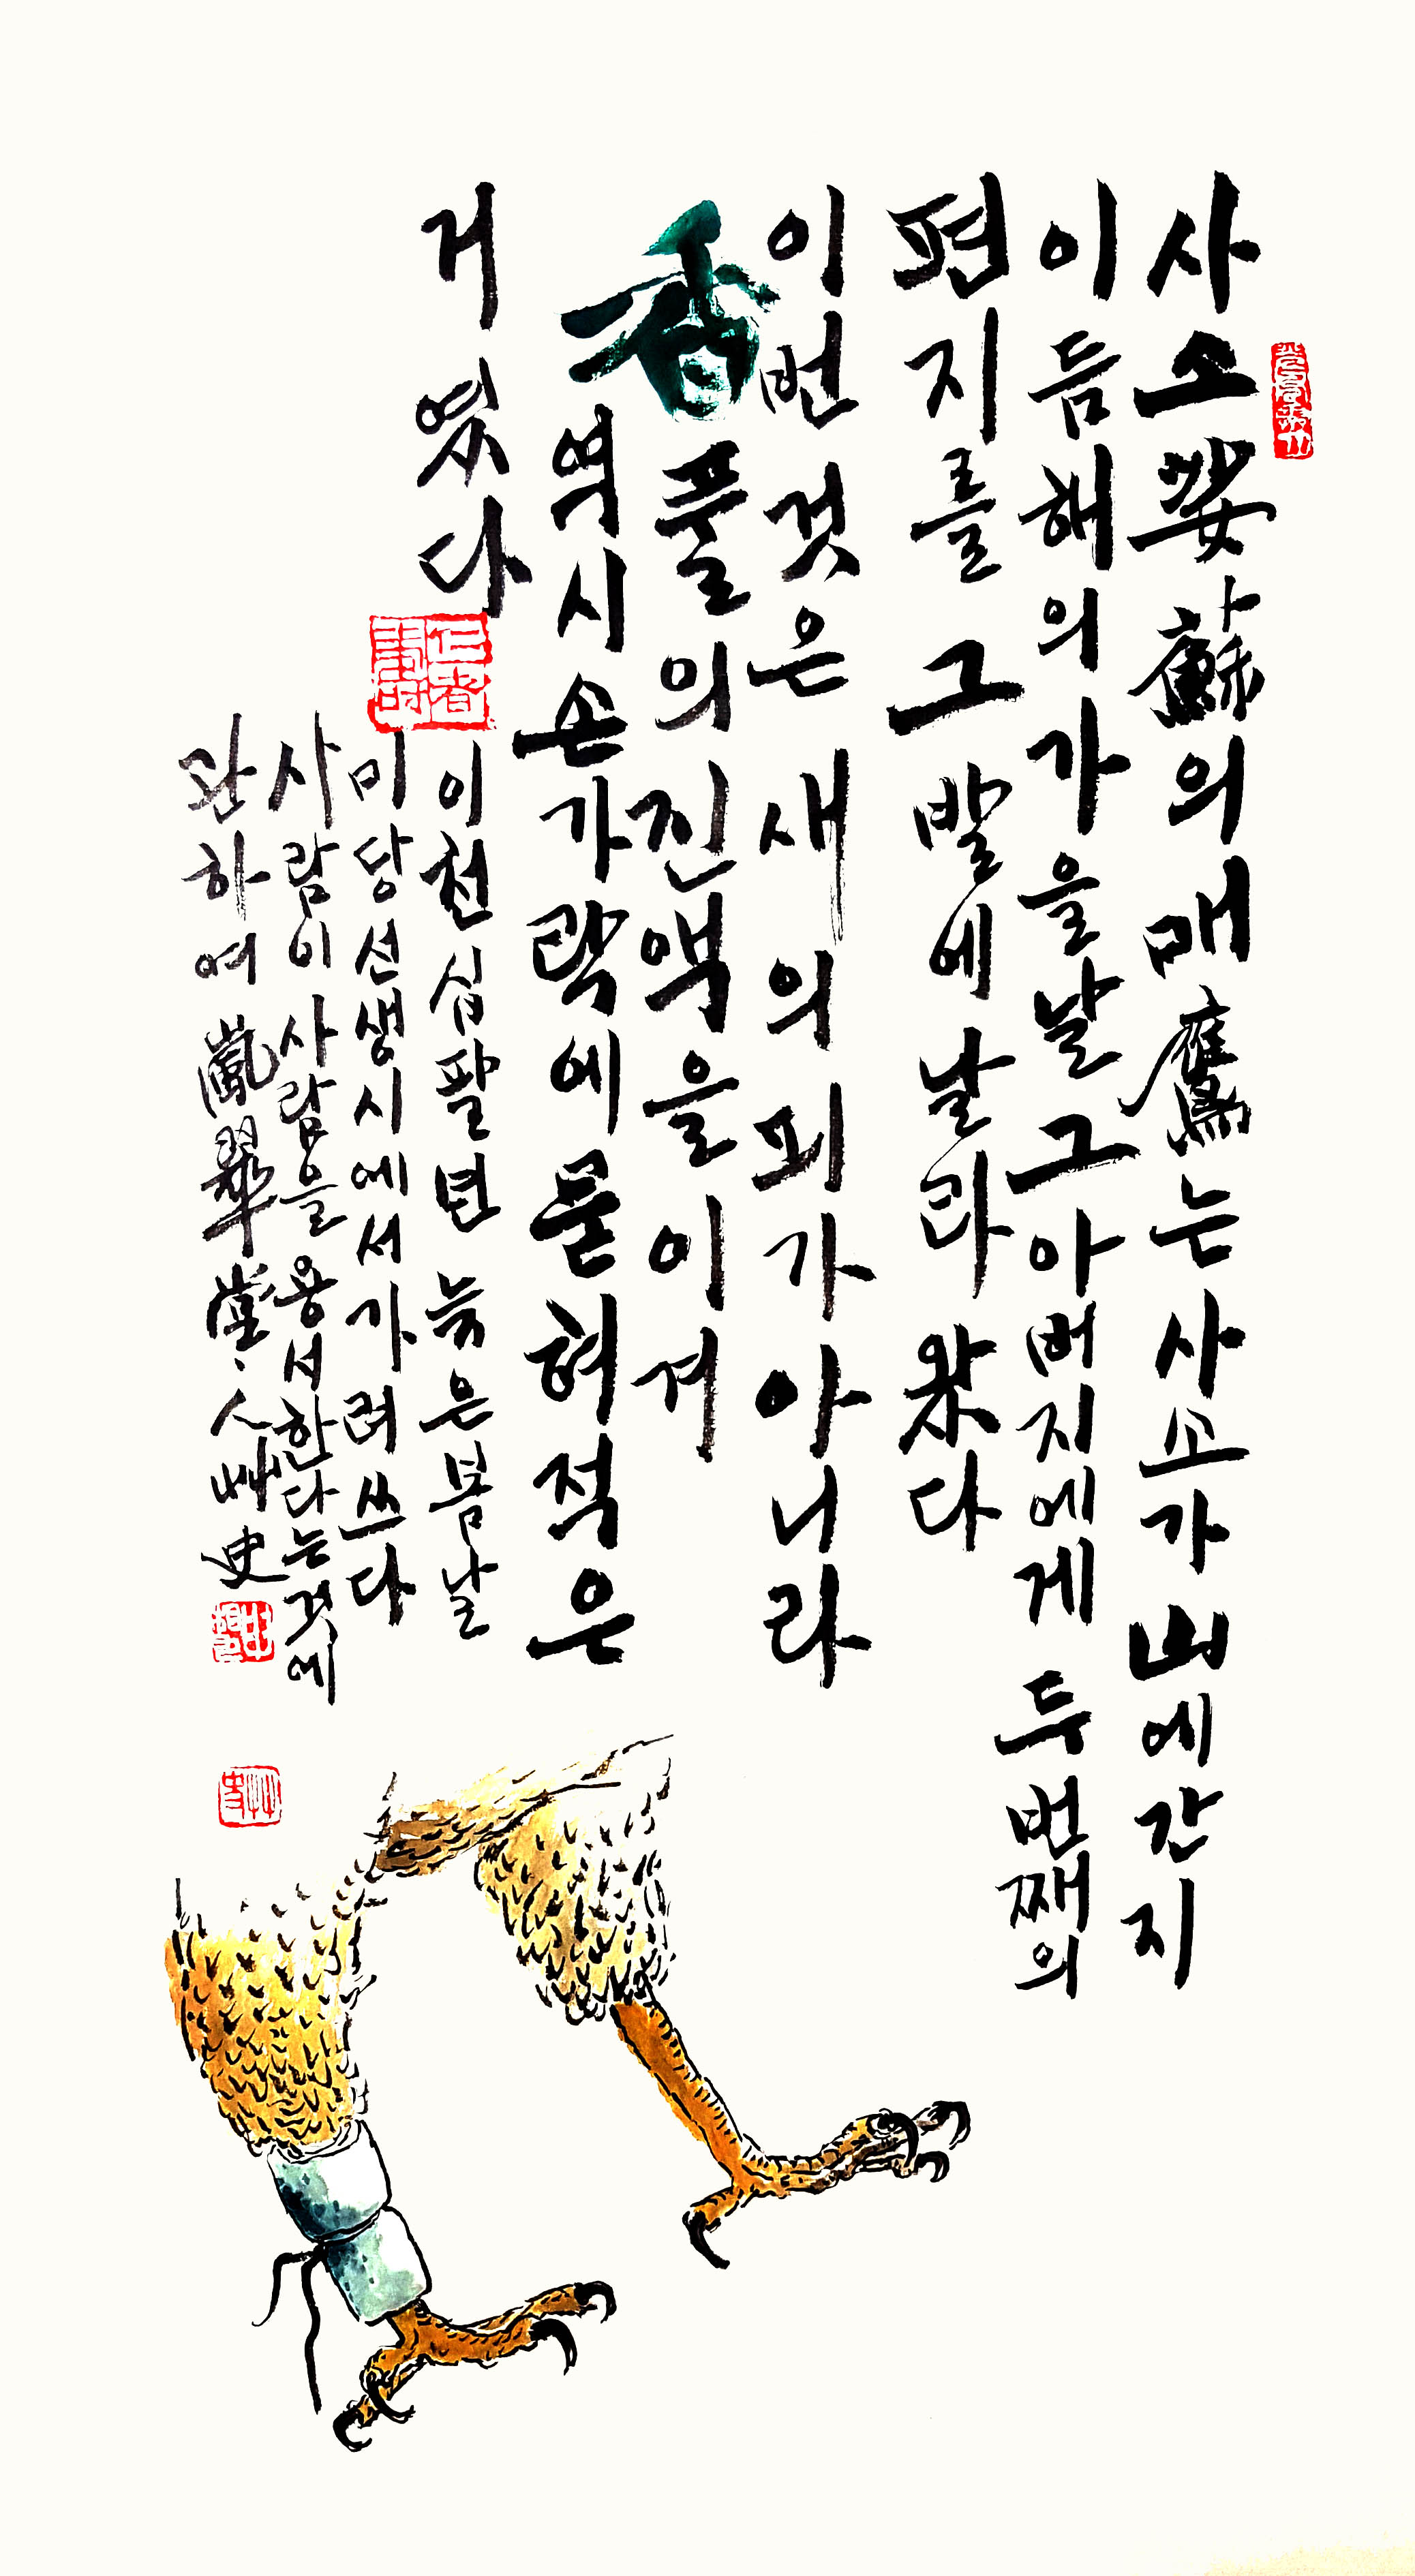 사소娑蘇의매鷹는 사소가 山에간지
이듬해의가을날그아버지에게 두번째의
편지를 그발에날라왔다
이번것은 새의피가아니라
香풀의진액을이겨
역시손가락에묻혀적은
거였다
이천십팔년 늙은봄날
미당선생시에서가려쓰다
사람이사람을용서한다는것에
관하여 翠堂人艸史
仁者壽